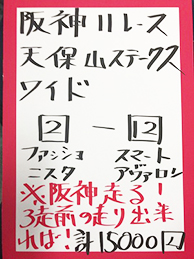 阪神11レース
天保山ステークス
ワイド
2 - 12
ファッショ スマート
ニスタ アヴァロン
※阪神走る!
3走前の走り出来
れば!計15000円